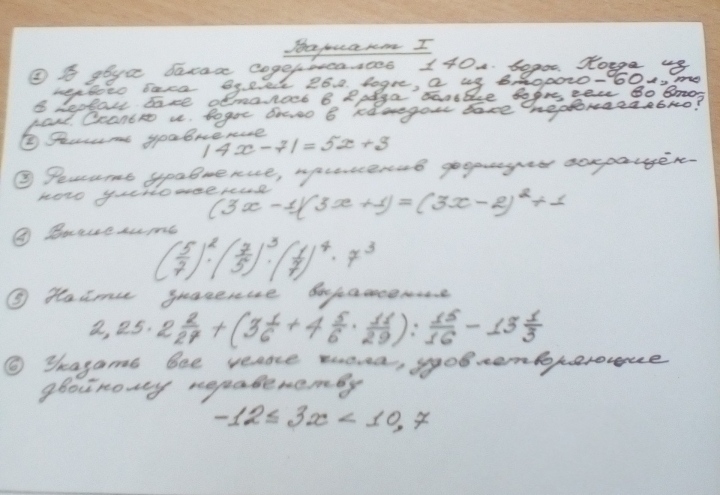 Вариант I
① В двух баках содержалось 140 л. воды. Когда из
первого бака взяли 26 л. воды, а из второго – 60 л., то
в первом баке осталось в 2 раза больше воды, чем во вто-
ром. Сколько л. воды было в каждом баке первоначально?
② Решить уравнение
|4x – 7| = 5x + 3
③ Решить уравнение, применив формулы сокращён-
ного умножения
(3x – 1)(3x + 1) = (3x – 2)² + 1
④ Вычислить
(5/7)² · (7/5)³ · (1/7)⁴ · 7³
⑤ Найти значение выражения
2,25 · 2 2/27 + (3 1/6 + 4 5/6 · 11/29) : 15/16 – 13 1/3
⑥ Указать все целые числа, удовлетворяющие
двойному неравенству
–12 ≤ 3x < 10,7